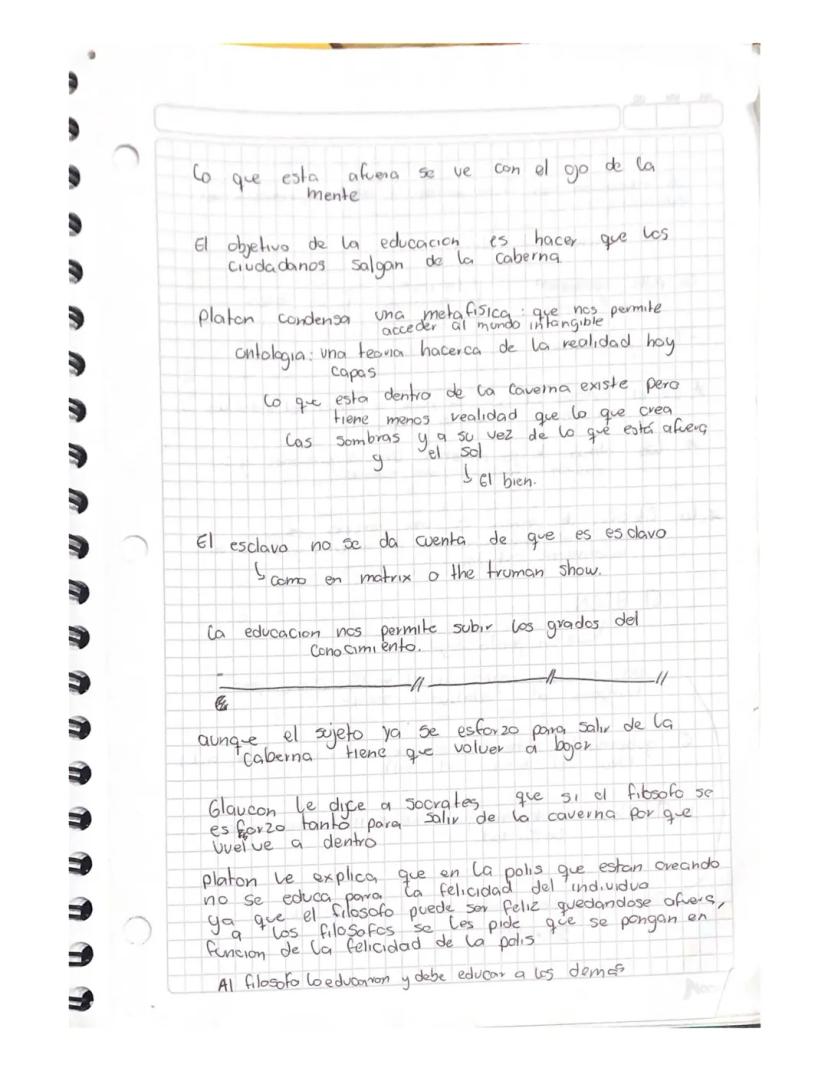 Lo que esta afuera se ve con el ojo de la
mente
El objetivo de la educacion es hacer que los
ciudadanos salgan de la caberna
Platon condensa una metafisica: que nos permite
acceder al mundo intangible
ontologia: una teoria hacerca de la realidad hay
capas
Lo que esta dentro de la caverna existe pero
tiene menos realidad que lo que crea
Las sombras y a su vez de lo que está afuera
y el sol
↳ El bien.
El esclavo no se da cuenta de que es esclavo
↳ como en matrix o the truman show.
La educacion nos permite subir los grados del
conocimiento.
aunque el sujeto ya se esforzo para salir de la
caberna tiene que volver a bajar
Glaucon le dice a socrates que si el filosofo se
esforzo tanto para salir de la caverna por que
vuelve a dentro
platon le explica que en la polis que estan creando
no se educa para la felicidad del individuo
ya que el filosofo puede ser feliz quedandose afuera,
a los filosofos se les pide que se pongan en
funcion de la felicidad de la polis
Al filosofo lo educaron y debe educar a los demas